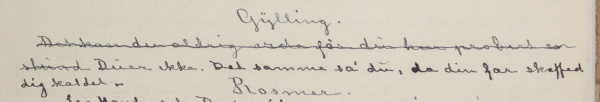 Gylling.
Det kan du aldrig veda før du har probert en
stund Du er ikke. Det samme sa' du, da din far skaffed
dig kaldet.
Rosmer.